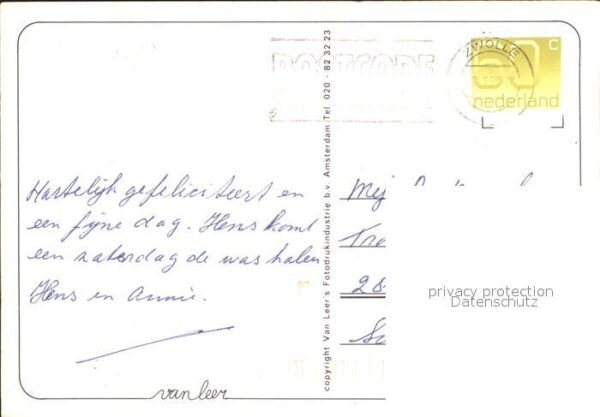 ZWOLLE
POSTCODE
60 c
nederland
Hartelijk gefeliciteert en
een fijne dag. Hens komt
een zaterdag de was halen
Hens en Annie.
van leer
copyright Van Leer's Fotodrukindustrie b.v. Amsterdam Tel. 020 - 82 32 23
Mej
privacy protection
Datenschutz